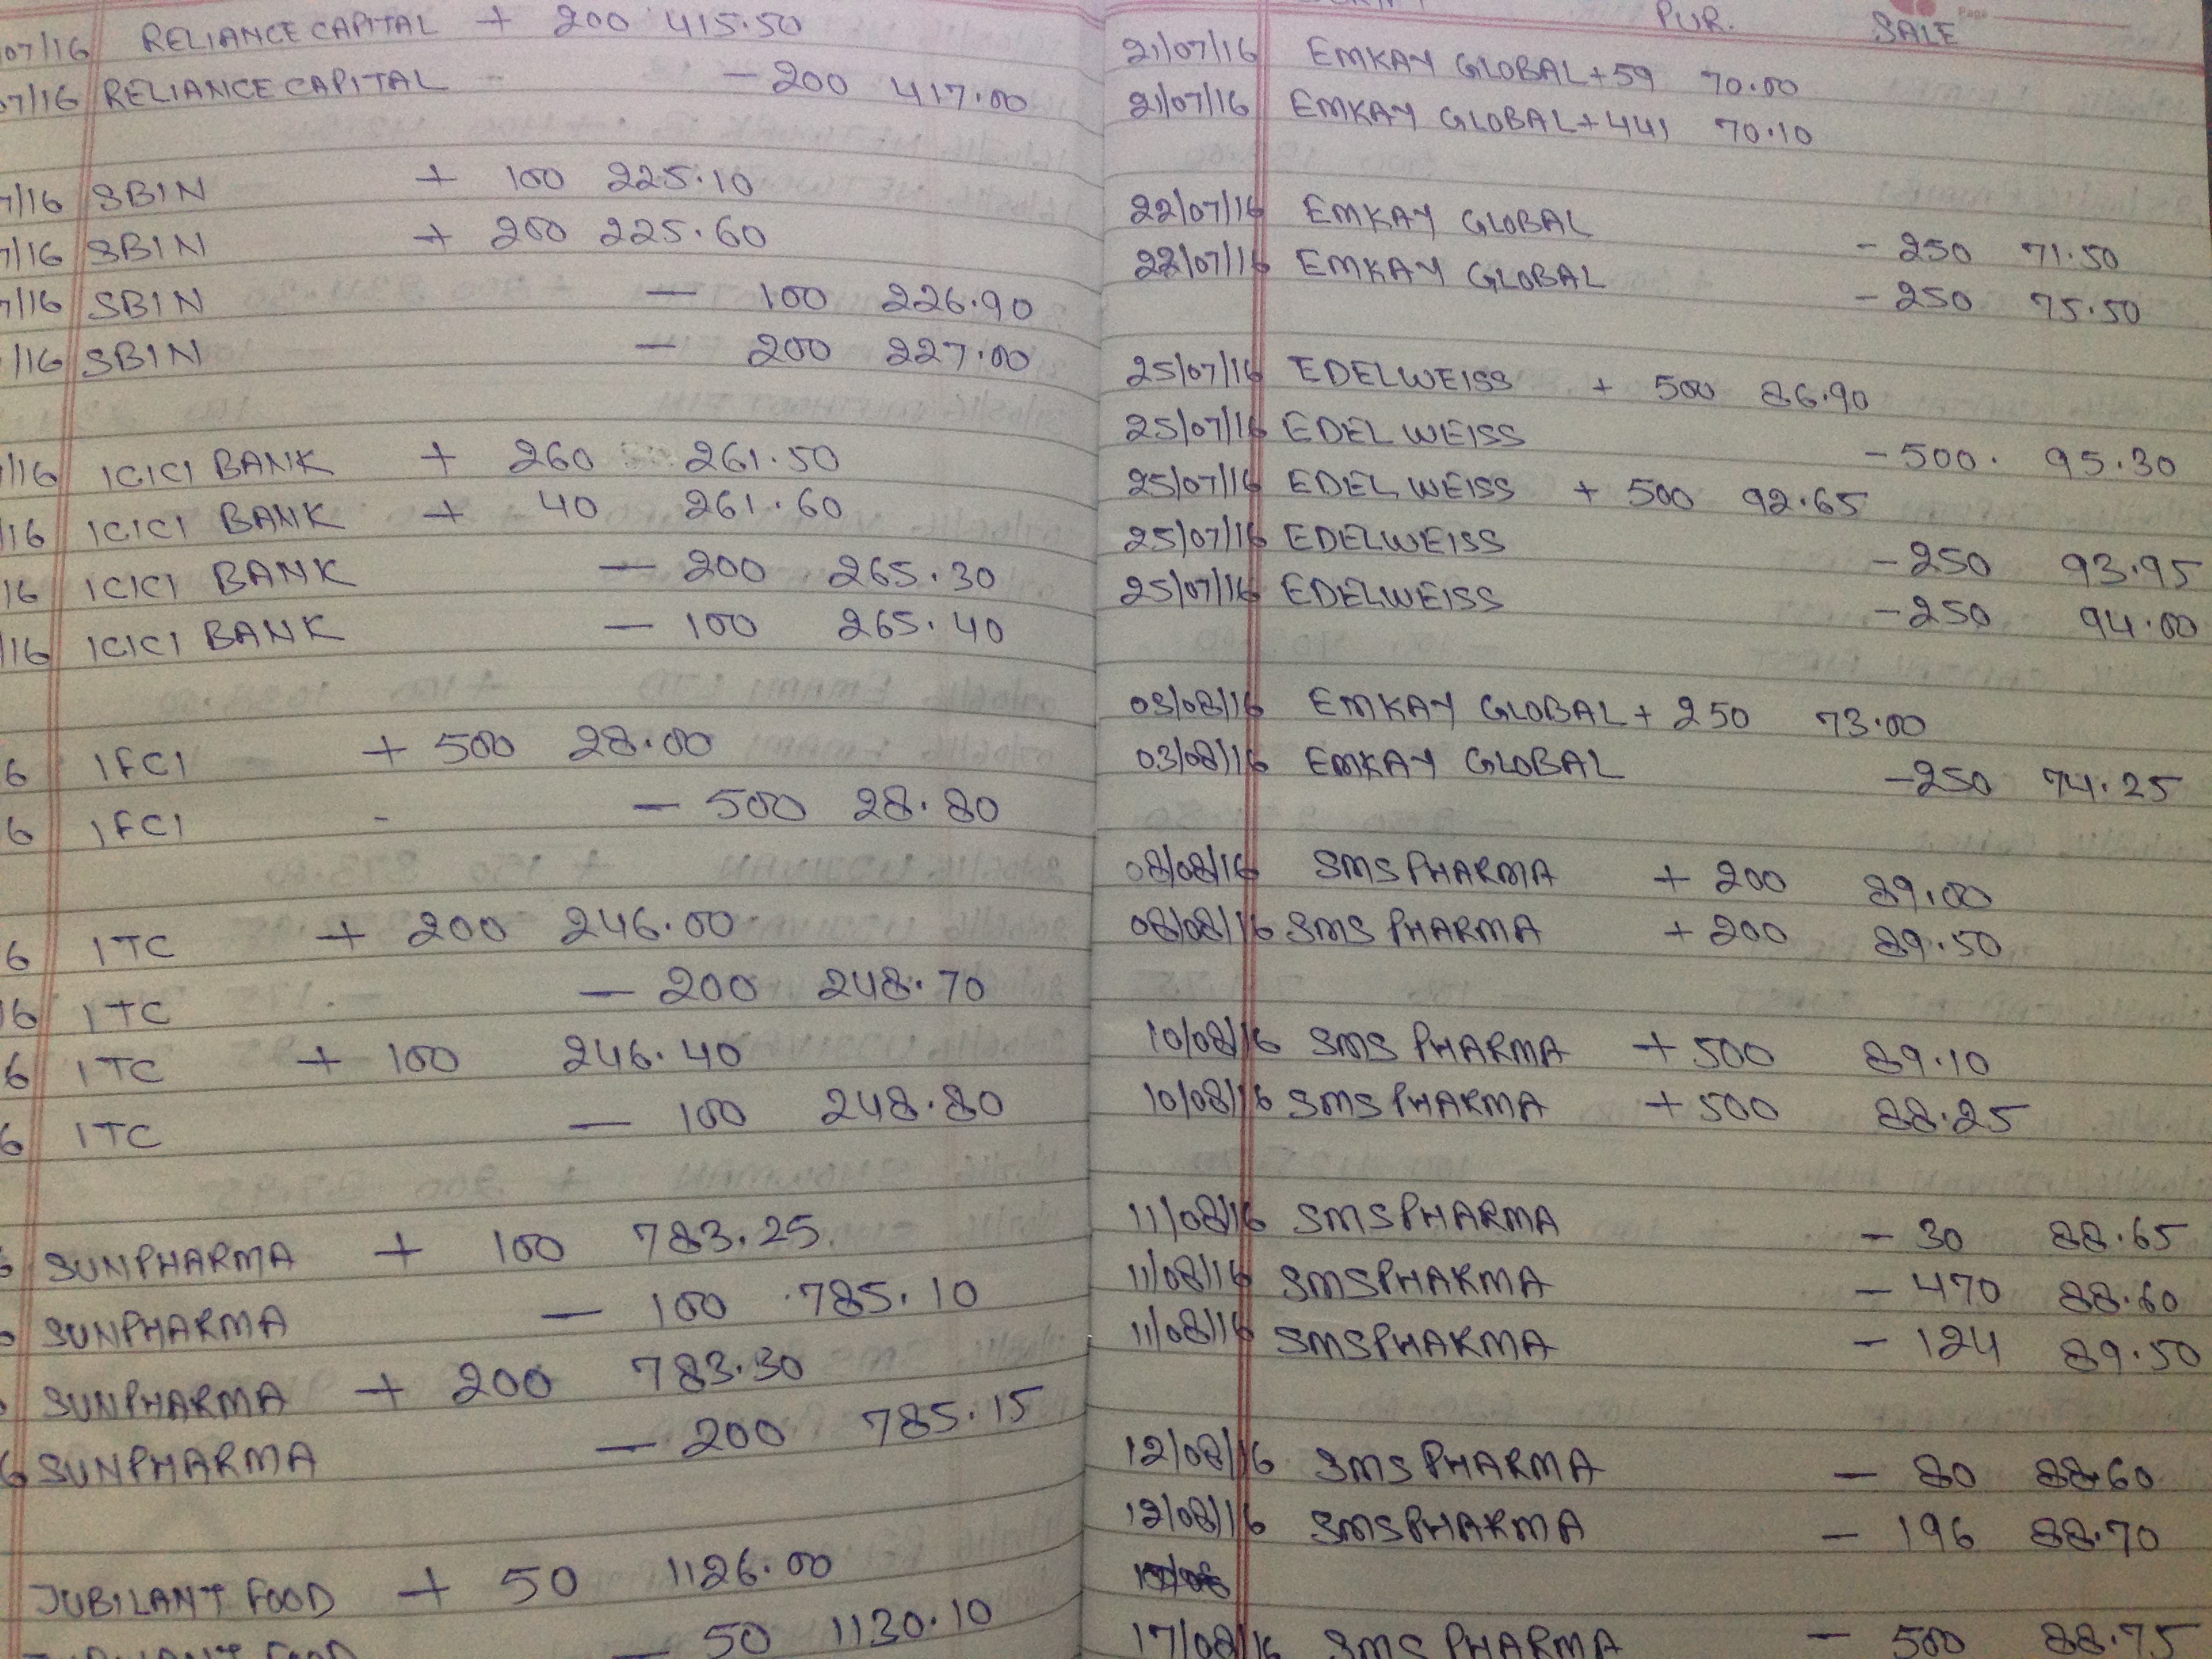 07/16 RELIANCE CAPITAL + 200 415.50
07/16 RELIANCE CAPITAL - 200 417.00
7/16 SBIN + 100 225.10
7/16 SBIN + 200 225.60
7/16 SBIN - 100 226.90
/16 SBIN - 200 227.00
/16 ICICI BANK + 260 261.50
16 ICICI BANK + 40 261.60
16 ICICI BANK - 200 265.30
16 ICICI BANK - 100 265.40
6 IFCI + 500 28.00
6 IFCI - 500 28.80
6 ITC + 200 246.00
16 ITC - 200 248.70
6 ITC + 100 246.40
6 ITC - 100 248.80
6 SUNPHARMA + 100 783.25
SUNPHARMA - 100 785.10
SUNPHARMA + 200 783.30
6 SUNPHARMA - 200 785.15
JUBILANT FOOD + 50 1126.00
JUBILANT FOOD - 50 1130.10
PUR. SALE
21/07/16 EMKAY GLOBAL + 59 70.00
21/07/16 EMKAY GLOBAL + 441 70.10
22/07/16 EMKAY GLOBAL - 250 71.50
22/07/16 EMKAY GLOBAL - 250 75.50
25/07/16 EDELWEISS + 500 86.90
25/07/16 EDELWEISS - 500. 95.30
25/07/16 EDELWEISS + 500 92.65
25/07/16 EDELWEISS - 250 93.95
25/07/16 EDELWEISS - 250 94.00
03/08/16 EMKAY GLOBAL + 250 73.00
03/08/16 EMKAY GLOBAL - 250 74.25
08/08/16 SMS PHARMA + 200 89.00
08/08/16 SMS PHARMA + 200 89.50
10/08/16 SMS PHARMA + 500 89.10
10/08/16 SMS PHARMA + 500 88.25
11/08/16 SMS PHARMA - 30 88.65
11/08/16 SMS PHARMA - 470 88.60
11/08/16 SMS PHARMA - 124 89.50
12/08/16 SMS PHARMA - 80 88.60
12/08/16 SMS PHARMA - 196 88.70
17/08/16 SMS PHARMA - 500 88.75